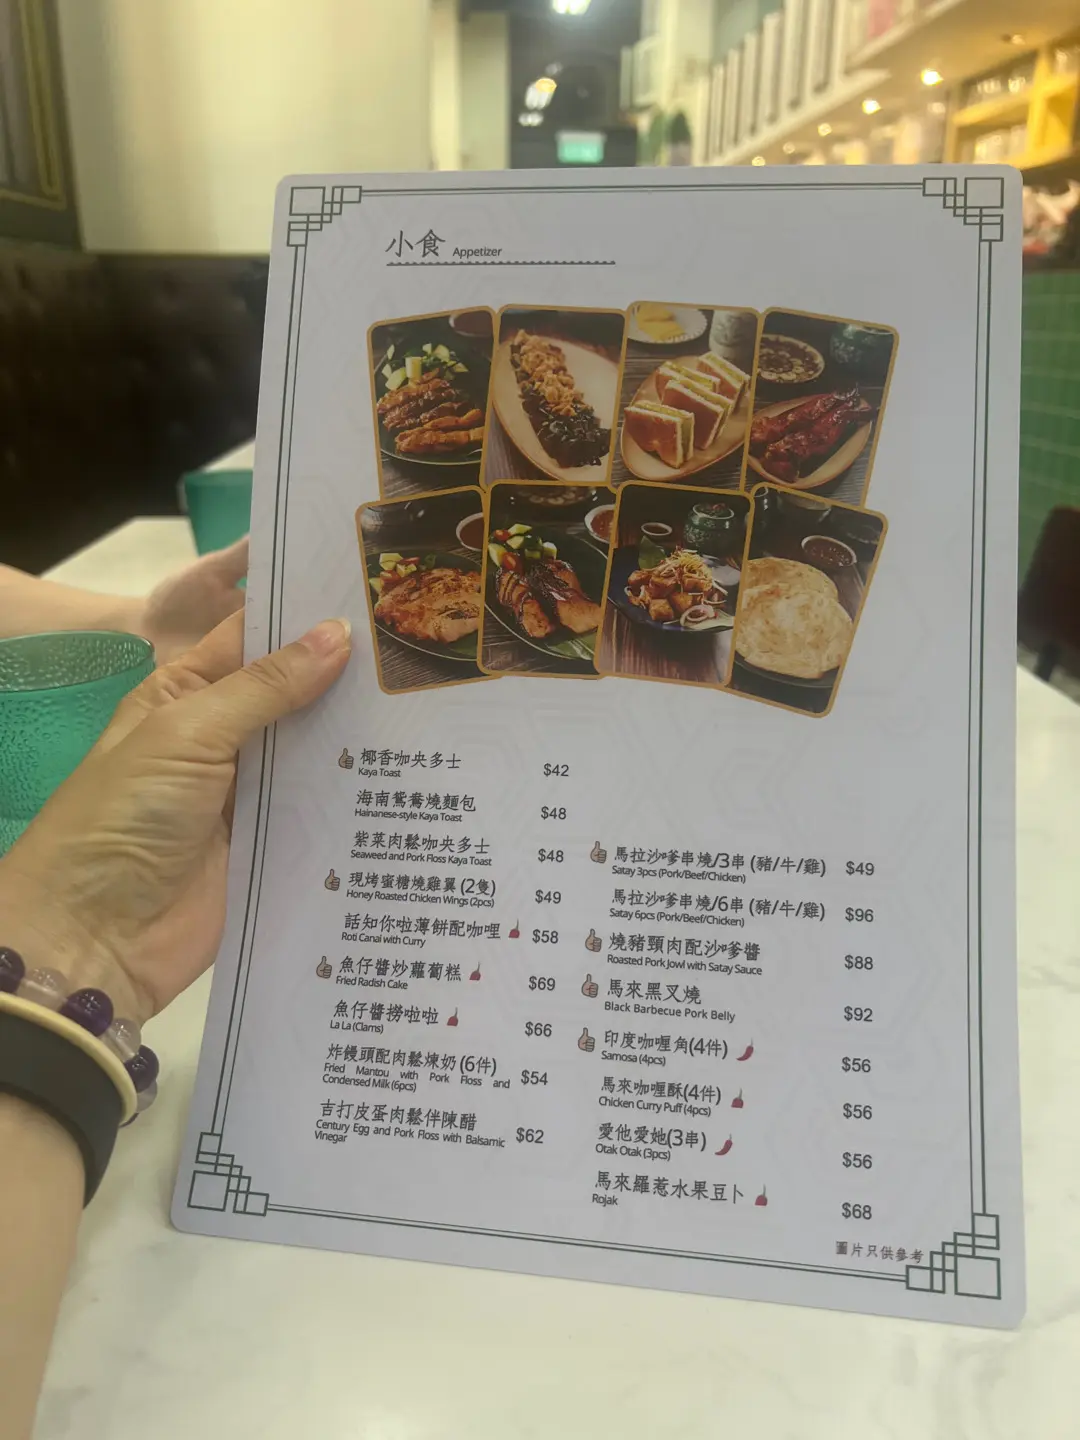 小食 Appetizer
椰香咖央多士 $42
Kaya Toast
海南鴛鴦燒麵包 $48
Hainanese-style Kaya Toast
紫菜肉鬆咖央多士 $48
Seaweed and Pork Floss Kaya Toast
現烤蜜糖燒雞翼 (2隻) $49
Honey Roasted Chicken Wings (2pcs)
話知你啦薄餅配咖哩 $58
Roti Canai with Curry
魚仔醬炒蘿蔔糕 $69
Fried Radish Cake
魚仔醬撈啦啦 $66
La La (Clams)
炸饅頭配肉鬆煉奶 (6件) $54
Fried Mantou with Pork Floss and
Condensed Milk (6pcs)
吉打皮蛋肉鬆伴陳醋 $62
Century Egg and Pork Floss with Balsamic
Vinegar
馬拉沙嗲串燒/3串 (豬/牛/雞) $49
Satay 3pcs (Pork/Beef/Chicken)
馬拉沙嗲串燒/6串 (豬/牛/雞) $96
Satay 6pcs (Pork/Beef/Chicken)
燒豬頸肉配沙嗲醬 $88
Roasted Pork Jowl with Satay Sauce
馬來黑叉燒 $92
Black Barbecue Pork Belly
印度咖喱角(4件) $56
Samosa (4pcs)
馬來咖喱酥(4件) $56
Chicken Curry Puff (4pcs)
愛他愛她(3串) $56
Otak Otak (3pcs)
馬來羅惹水果豆卜 $68
Rojak
圖片只供參考